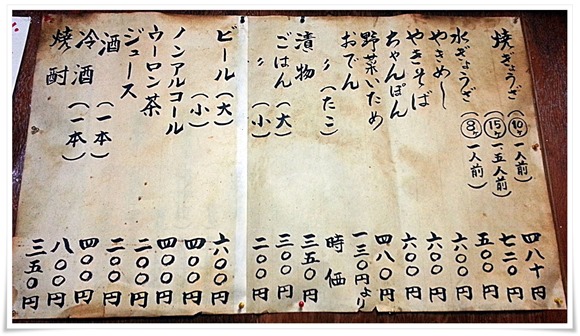 焼ぎょうざ(10ヶ)一人前 四八十円
(15ヶ)一、五人前 七二〇円
水ぎょうざ(8ヶ)一人前 五〇〇円
やきめし 六〇〇円
やきそば 六〇〇円
ちゃんぽん 六〇〇円
野菜いため 四八〇円
おでん 一三〇円より
〃(たこ) 時価
漬物 三五〇円
ごはん(大) 三〇〇円
〃(小) 二〇〇円
ビール(大) 六〇〇円
(小) 四〇〇円
ノンアルコール 四〇〇円
ウーロン茶 二〇〇円
ジュース 二〇〇円
酒(一本) 四〇〇円
冷酒(一本) 八〇〇円
焼酎 三五〇円